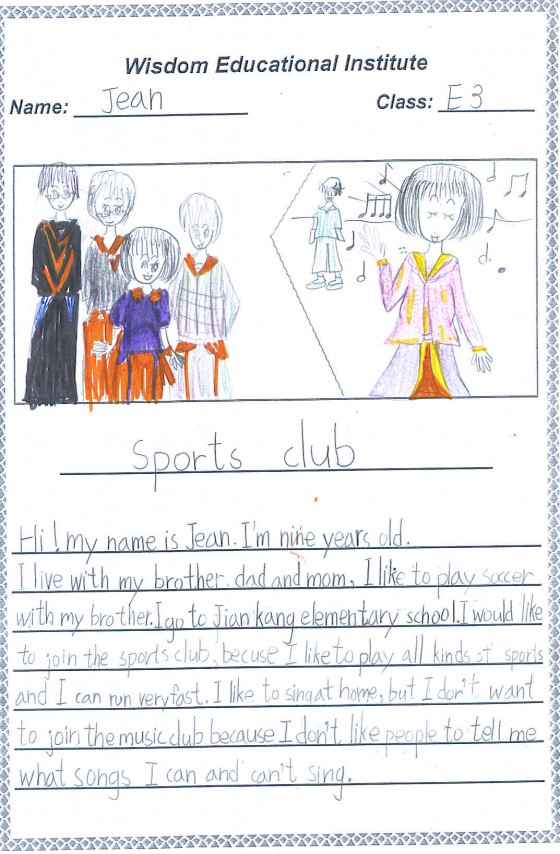 Wisdom Educational Institute
Name: Jean
Class: E3
Sports club
Hi! my name is Jean. I'm nine years old.
I live with my brother. dad and mom, I like to play soccer
with my brother. I go to Jian kang elementary school. I would like
to join the sports club, becuse I like to play all kinds of sports
and I can run very fast. I like to sing at home, but I don't want
to join the music club because I don't like people to tell me
what songs I can and can't sing.